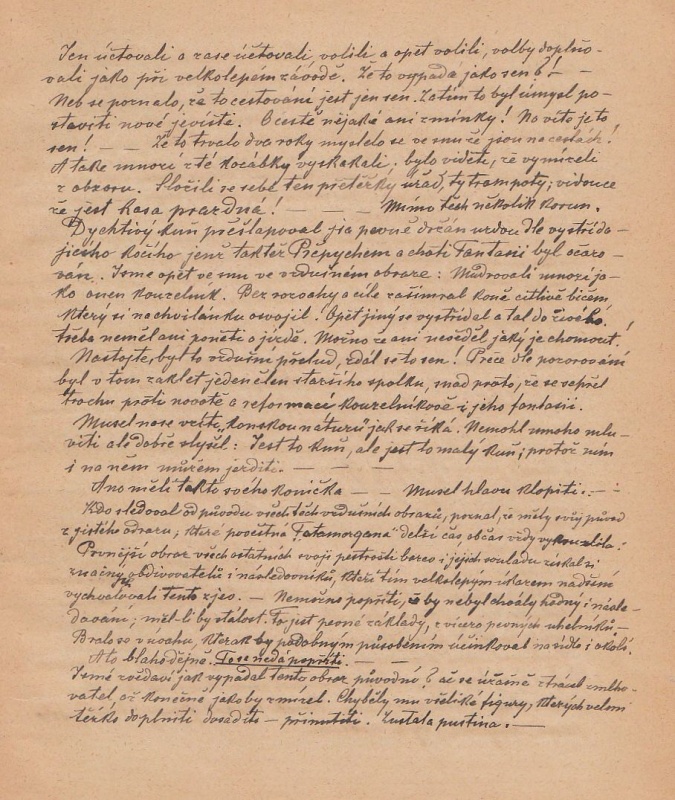 Jen účtovali a zase účtovali, volili a opět volili, volby doplňo-
vali jako při velkolepém závodě. Že to vypadá jako sen?! —
Neb se poznalo, že to cestování jest jen sen. Zatím to byl úmysl po-
staviti nové jeviště. O cestě nějaké ani zmínky! No vite je to
sen! — — Že to trvalo dva roky myslelo se ve snu že jsou na cestách!
A také mnozí z té kocábky vyskákali, bylo viděti, že vymizeli
z obzoru. Složili se sebe ten přetěžký úřad, ty trampoty; vidouce
že jest kasa prazdná! — — — Mimo těch několik korun.
Dychtivý kuň přešlapoval jsa pevně držán uzdou dle vystřída-
jícího kočího jenž taktéž Přepychem a choti Fantasií byl očaro-
ván. Jsme opět ve snu ve vzdušném obraze: Mudrovali mnozí ja-
ko onen kouzelník. Bez rozvahy a cíle zašimral koně citlivě bičem
který si na chvilánku osvojil. Opět jiný se vystřídal a tal do živého,
třeba neměl ani ponětí o jízdě. Možno že ani nevěděl jaký je chomout!
Nastojte, byl to vzdušný přelud, zdál se to sen! Přece dle pozorování
byl v tom zaklet jeden člen staršího spolku, snad proto, že se vepřel
trochu proti novotě a reformaci kouzelníkově i jeho fantasii.
Musel nose vézti „konskou naturu“ jak se říká. Nemohl mnoho mlu-
viti ale dobře slyšel: Jest to kuň, ale jest to malý kuň; protož smím
i na něm můžem jezditi. — — — —
Ano měli takto svého konička — — Musel hlavu klopiti. — —
Kdo sledoval od původu všech těch vzdušních obrazů, poznal, že měly svůj původ
z jistého odrazu, které povéstná „Fatamorgana“ delší čas občas vždy vykouzlila!
Prvnější obraz všech ostatních svojí pestrostí barev i jejich souladu získal si
značný obdivovatelů i následovníků, kteří tím velkolepým úkazem nadšeni
vychvalovali tento zjev. — Nemožno popříti, že by nebyl chvály hodný i násle-
dování; měl-li by stálost. To jest pevné základy, z vícero pevných uhelníků. —
Bralo se v úvahu, kterak by podobným působením účinkoval na sídlo i okolí.
A to blahodějně. To se nedá popříti. — —
Jsme zvědaví jak vypadal tento obraz původní? až se úžasně ztrácel zmlho-
vatěl, až konečně jakoby zmizel. Chyběly mu všeliké figury, kterých velmi
těžko doplniti dosadíte — přinutiti. Zustala pustina. —